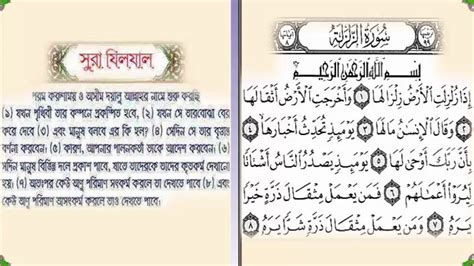 সুরা যিলযাল
পরম করুণাময় ও অসীম দয়ালু আল্লাহর নামে শুরু করছি
(১) যখন পৃথিবী তার কম্পনে প্রকম্পিত হবে, (২) যখন সে তার বোঝা বের
করে দেবে (৩) এবং মানুষ বলবে এর কি হল? (৪) সেদিন সে তার বৃত্তান্ত
বর্ণনা করবে। (৫) কারণ, আপনার পালনকর্তা তাকে আদেশ করবেন। (৬)
সেদিন মানুষ বিভিন্ন দলে প্রকাশ পাবে, যাতে তাদেরকে তাদের কৃতকর্ম দেখানো
হয়। (৭) অতঃপর কেউ অণু পরিমাণ সৎকর্ম করলে তা দেখতে পাবে। (৮) এবং
কেউ অণু পরিমাণ অসৎকর্ম করলে তাও দেখতে পাবে।
سُورَةُ الزَّلْزَلَةِ
بِسْمِ اللَّهِ الرَّحْمَٰنِ الرَّحِيمِ
إِذَا زُلْزِلَتِ الْأَرْضُ زِلْزَالَهَا ١ وَأَخْرَجَتِ الْأَرْضُ أَثْقَالَهَا
٢ وَقَالَ الْإِنسَانُ مَا لَهَا ٣ يَوْمَئِذٍ تُحَدِّثُ أَخْبَارَهَا ٤
بِأَنَّ رَبَّكَ أَوْحَى لَهَا ٥ يَوْمَئِذٍ يَصْدُرُ النَّاسُ أَشْتَاتًا
لِّيُرَوْا أَعْمَالَهُمْ ٦ فَمَن يَعْمَلْ مِثْقَالَ ذَرَّةٍ خَيْرًا
يَرَهُ ٧ وَمَن يَعْمَلْ مِثْقَالَ ذَرَّةٍ شَرًّا يَرَهُ ٨